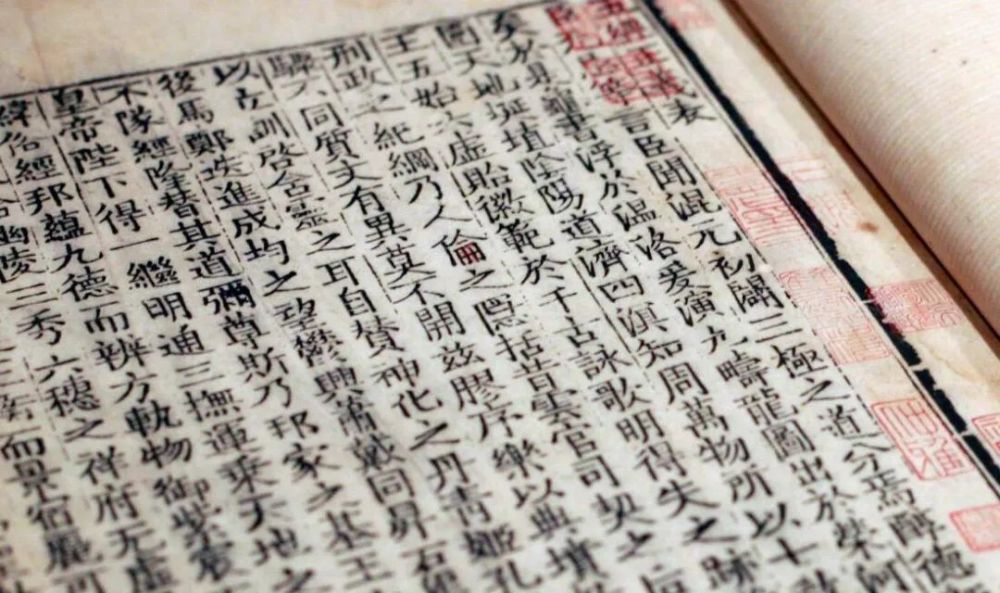 五經正義表
言臣聞混元初闢三極之道分焉醇德
矣於是龜書浮於温洛爰演九疇龍圖出於榮河
圍天地埏埴陰陽道濟四溟知周萬物所以七教
王五始六虛貽徽範於千古詠歌明得失之跡
刑政之紀綱乃人倫之隱括昔雲官司契之后
驟不同質文有異莫不開兹膠序樂以典墳
以立訓啓含靈之耳目賛神化之丹青姬孔
後馬鄭迭進成均之望鬱興蕭戴同昇石
不隊經隆替其道彌尊斯乃邦家之基王
皇帝陛下得一繼明通三撫運乘天地之
緯俗經邦蘊九德而辨方軌物御紫宸
洽幽陵三秀六穗之祥府无虛
衡而景宿麗可